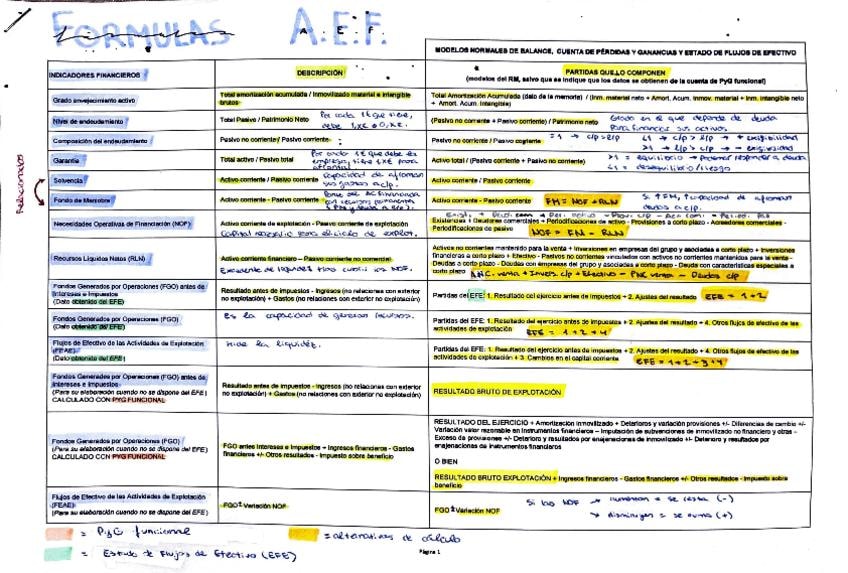 FORMULAS A.E.F.
A E F
MODELOS NORMALES DE BALANCE, CUENTA DE PÉRDIDAS Y GANANCIAS Y ESTADO DE FLUJOS DE EFECTIVO
INDICADORES FINANCIEROS
DESCRIPCIÓN
PARTIDAS QUE LO COMPONEN
(modelos del RM, salvo que se indique que los datos se obtienen de la cuenta de PyG funcional)
Grado envejecimiento activo
Total amortización acumulada / Inmovilizado material e intangible
brutos
Total Amortización Acumulada (dato de la memoria) / (Inm. material neto + Amort. Acum. Inmov. material + Inm. intangible neto
+ Amort. Acum. Intangible)
Nivel de endeudamiento
Total Pasivo / Patrimonio Neto
Por cada 1€ que tiene,
debe
(Pasivo no corriente + Pasivo corriente) / Patrimonio Neto
Grado en el que depende de deuda
para financiar sus activos
Composición del endeudamiento
Pasivo no corriente / Pasivo corriente
Pasivo no corriente / Pasivo corriente
<1 → c/p > l/p → + exigibilidad
>1 → l/p > c/p → - exigibilidad
Garantía
Total activo / Pasivo total
Por cada 1€ que debe la
empresa, tiene 1,X€ para
afrontarlo
Activo total / (Pasivo corriente + Pasivo no corriente)
>1 = equilibrio → poder responder a deuda
<1 = desequilibrio/riesgo
Relacionados
Solvencia
Activo corriente / Pasivo corriente
Capacidad de afrontar
sus gastos a c/p.
Activo corriente / Pasivo corriente
Fondo de Maniobra
Activo corriente - Pasivo corriente
Parte del AC financiada
con recursos permanentes
Activo corriente - Pasivo corriente
FM = NOF + RLN
Si +FM, + capacidad de afrontar
deudas a c/p.
Necesidades Operativas de Financiación (NOF)
Activo corriente de explotación - Pasivo corriente de explotación
Capital necesario para el ciclo de explot.
Existencias + Deudores comerciales + Periodificaciones de activo - Provisiones a corto plazo - Acreedores comerciales -
Periodificaciones de pasivo
NOF = FM - RLN
Recursos Líquidos Netos (RLN)
Activo corriente financiero – Pasivo corriente no comercial
Excedente de liquidez tras cubrir los NOF.
Activos no corrientes mantenido para la venta + Inversiones en empresas del grupo y asociadas a corto plazo + Inversiones
financieras a corto plazo + Efectivo - Pasivos no corrientes vinculados con activos no corrientes mantenidos para la venta -
Deudas a corto plazo - Deudas con empresas del grupo y asociadas a corto plazo - Deudas con características especiales a
corto plazo
ANC venta + Invers. c/p + Efectivo - PNC venta - Deudas c/p
Fondos Generados por Operaciones (FGO) antes de
Intereses e Impuestos
(Dato obtenido del EFE)
Resultado antes de impuestos - Ingresos (no relaciones con exterior
no explotación) + Gastos (no relaciones con exterior no explotación)
Partidas del EFE: 1. Resultado del ejercicio antes de impuestos + 2. Ajustes del resultado
EFE = 1+2
Fondos Generados por Operaciones (FGO)
(Dato obtenido del EFE)
Es la capacidad de generar recursos.
Partidas del EFE: 1. Resultado del ejercicio antes de impuestos + 2. Ajustes del resultado + 4. Otros flujos de efectivo de las
actividades de explotación
EFE = 1+2+4
Flujos de Efectivo de las Actividades de Explotación
(FEAE)
(Dato obtenido del EFE)
Mide la liquidez.
Partidas del EFE: 1. Resultado del ejercicio antes de impuestos + 2. Ajustes del resultado + 4. Otros flujos de efectivo de las
actividades de explotación + 3. Cambios en el capital corriente
EFE = 1+2+3+4
Fondos Generados por Operaciones (FGO) antes de
Intereses e Impuestos
(Para su elaboración cuando no se dispone del EFE)
CALCULADO CON PYG FUNCIONAL
Resultado antes de impuestos - Ingresos (no relaciones con exterior
no explotación) + Gastos (no relaciones con exterior no explotación)
RESULTADO BRUTO DE EXPLOTACIÓN
Fondos Generados por Operaciones (FGO)
(Para su elaboración cuando no se dispone del EFE)
CALCULADO CON PYG FUNCIONAL
FGO antes Intereses e Impuestos + Ingresos financieros - Gastos
financieros +/- Otros resultados - Impuesto sobre beneficio
RESULTADO DEL EJERCICIO + Amortización inmovilizado + Deterioros y variación provisiones +/- Diferencias de cambio +/-
Variación valor razonable en instrumentos financieros – Imputación de subvenciones de inmovilizado no financiero y otras -
Exceso de provisiones +/- Deterioro y resultados por enajenaciones de inmovilizado +/- Deterioro y resultados por
enajenaciones de instrumentos financieros
O BIEN
RESULTADO BRUTO EXPLOTACIÓN + Ingresos financieros - Gastos financieros +/- Otros resultados - Impuesto sobre
beneficio
Flujos de Efectivo de las Actividades de Explotación
(FEAE)
(Para su elaboración cuando no se dispone del EFE)
FGO ± Variación NOF
FGO ± Variación NOF
Si las NOF → aumentan = se resta (-)
→ disminuyen = se suma (+)
= PyG funcional
= alternativas de cálculo
= Estado de Flujos de Efectivo (EFE)
Página 1